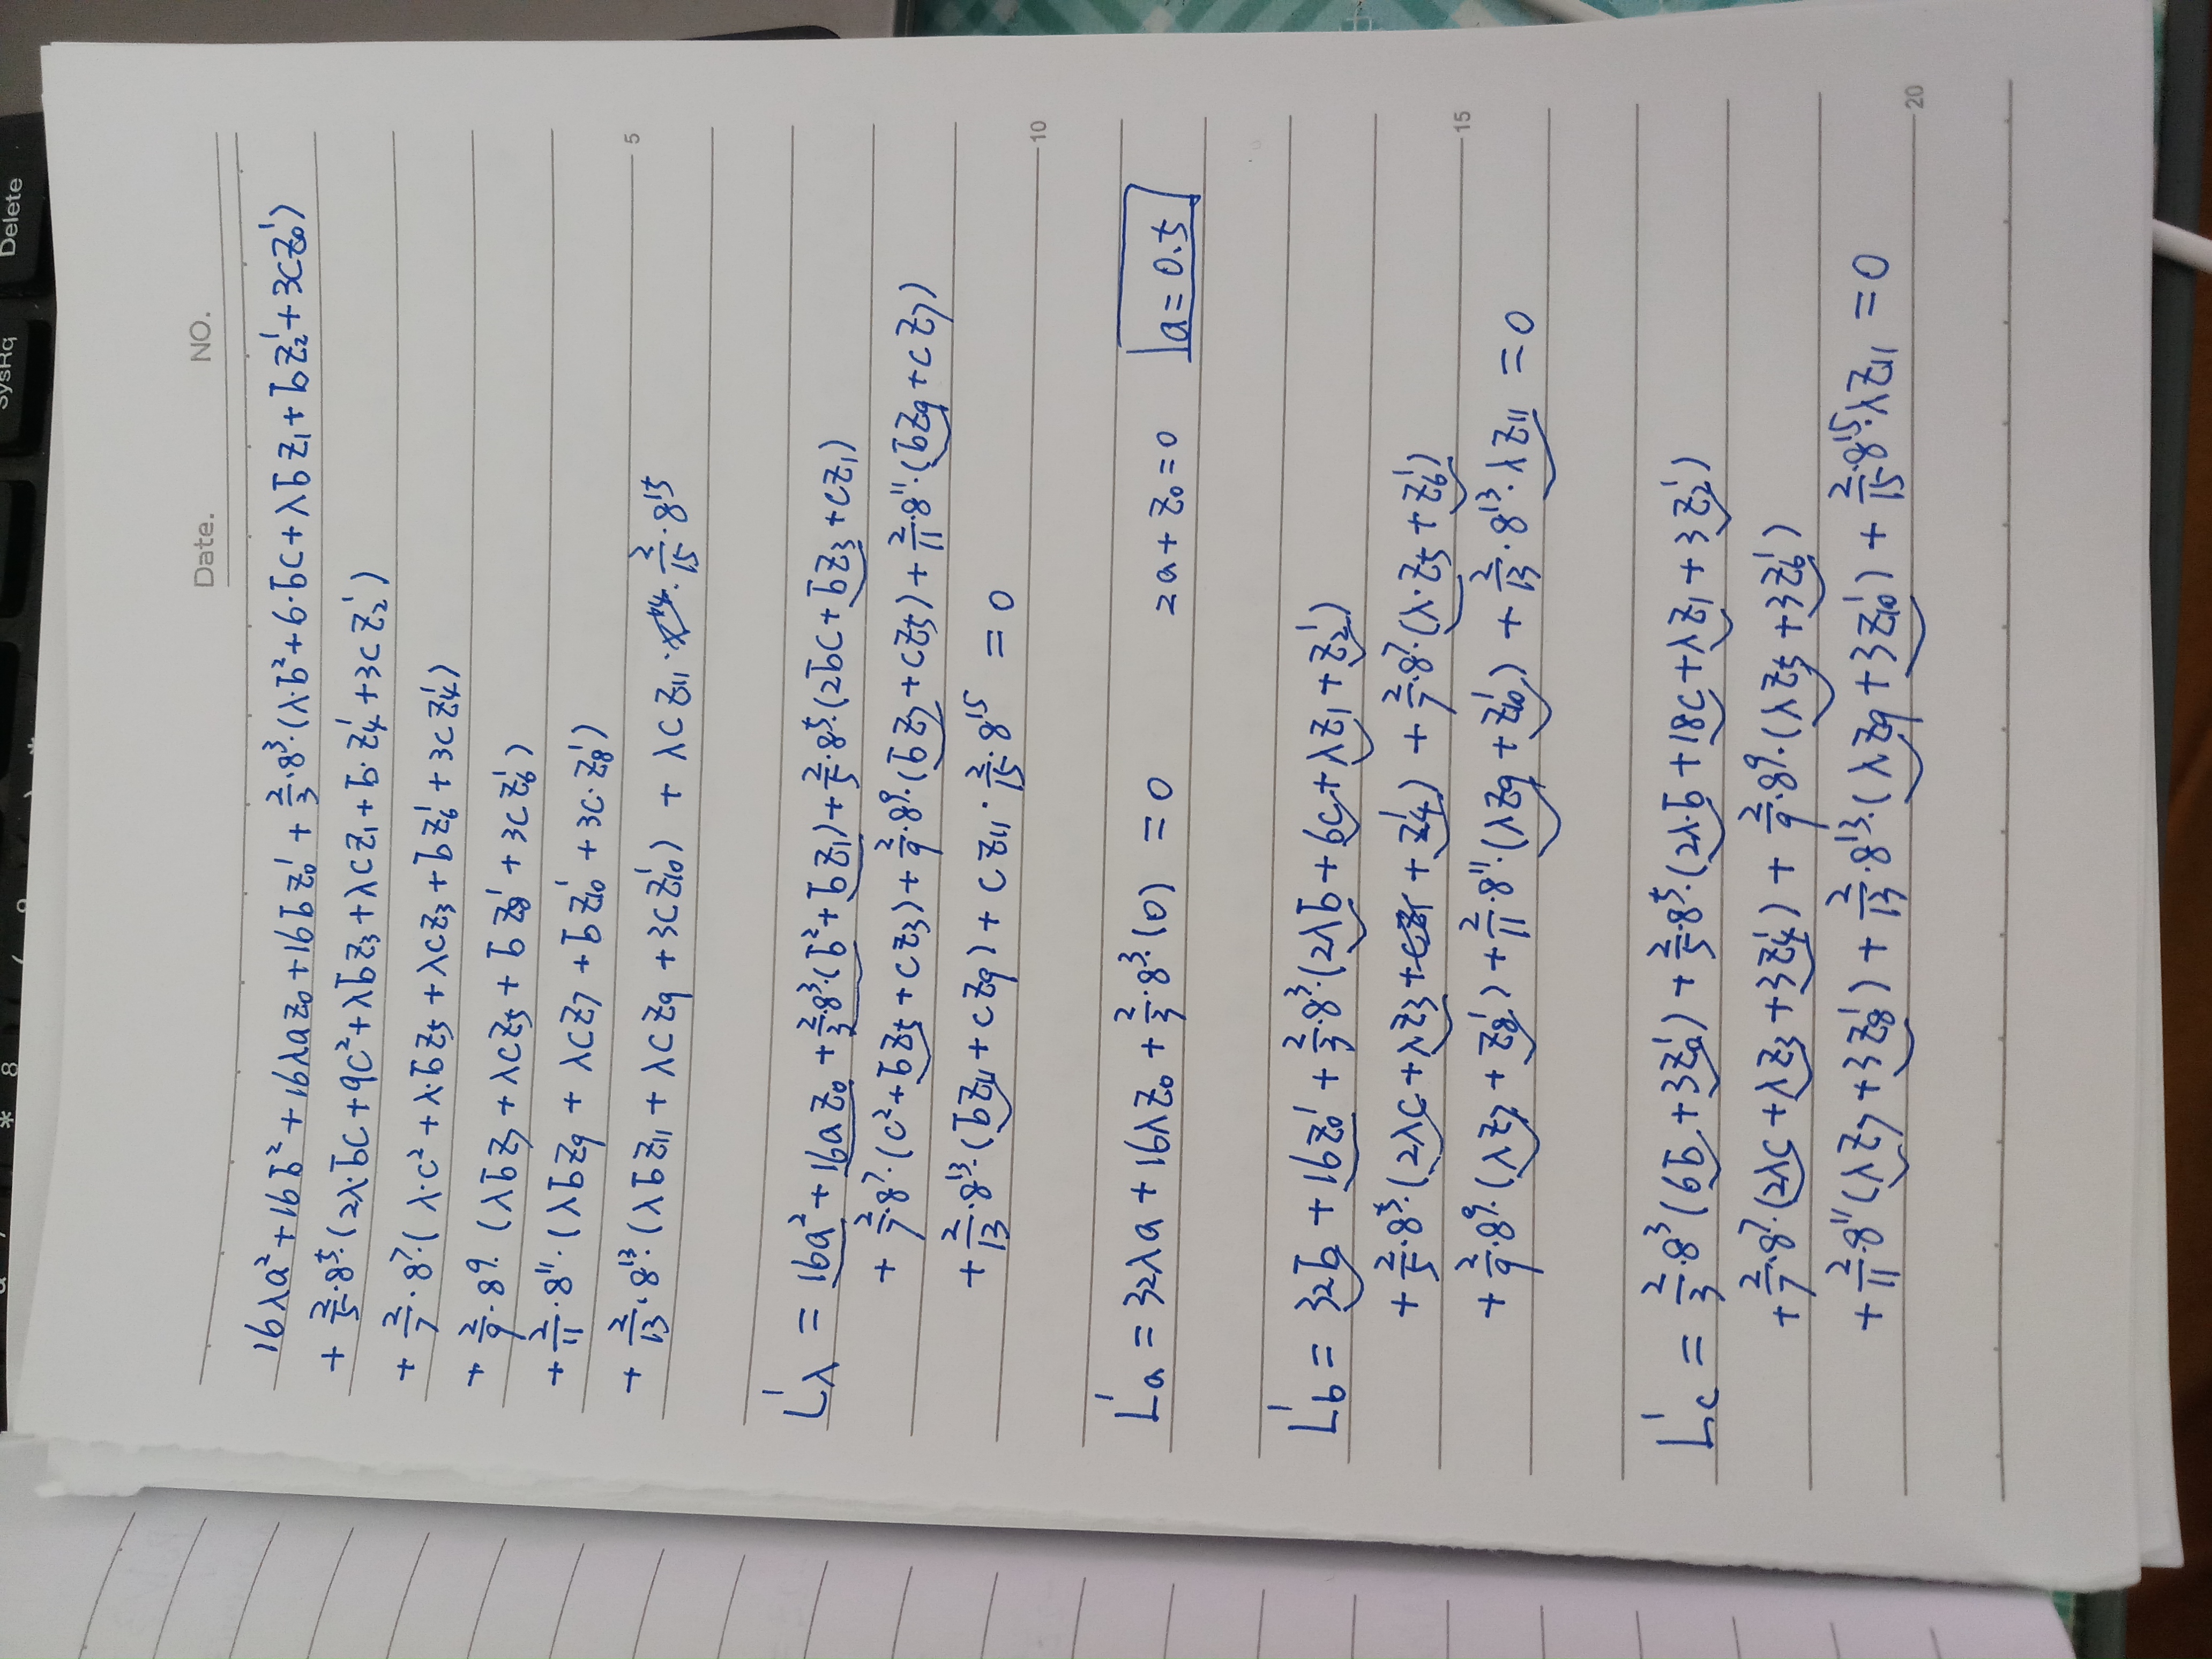 SysRq
Delete
* 8
( 9
Date. NO.
16λa² + 16b̄² + 16λaz₀ + 16b̄z₀' + 2/3·8³·(λ·b̄² + 6·b̄c + λb̄z₁ + b̄z₂' + 3cz₀')
+ 2/5·8⁵·(2λ·b̄c + 9c² + λb̄z₃ + λcz₁ + b̄·z₄' + 3cz₂')
+ 2/7·8⁷·(λ·c² + λ·b̄z₅ + λcz₃ + b̄z₆' + 3cz₄')
+ 2/9·8⁹·(λb̄z₇ + λcz₅ + b̄z₈' + 3cz₆')
+ 2/11·8¹¹·(λb̄z₉ + λcz₇ + b̄z₁₀' + 3c·z₈')
+ 2/13·8¹³·(λb̄z₁₁ + λcz₉ + 3cz₁₀') + λcz₁₁·2/15·8¹⁵
5
L'λ = 16a² + 16az₀ + 2/3·8³·(b̄² + b̄z₁) + 2/5·8⁵·(2b̄c + b̄z₃ + cz₁)
+ 2/7·8⁷·(c² + b̄z₅ + cz₃) + 2/9·8⁹·(b̄z₇ + cz₅) + 2/11·8¹¹·(b̄z₉ + cz₇)
+ 2/13·8¹³·(b̄z₁₁ + cz₉) + cz₁₁·2/15·8¹⁵ = 0
10
L'a = 32λa + 16λz₀ + 2/3·8³·(0) = 0 2a + z₀ = 0 a = 0.5
L'b = 32b̄ + 16z₀' + 2/3·8³·(2λb̄ + 6c + λz₁ + z₂')
+ 2/5·8⁵·(2λc + λz₃ + cz₁ + z₄') + 2/7·8⁷·(λ·z₅ + z₆')
15
+ 2/9·8⁹·(λz₇ + z₈') + 2/11·8¹¹·(λz₉ + z₁₀') + 2/13·8¹³·λz₁₁ = 0
L'c = 2/3·8³(6b̄ + 3z₀') + 2/5·8⁵·(2λ·b̄ + 18c + λz₁ + 3z₂')
+ 2/7·8⁷·(2λc + λz₃ + 3z₄') + 2/9·8⁹·(λz₅ + 3z₆')
+ 2/11·8¹¹(λz₇ + 3z₈') + 2/13·8¹³·(λz₉ + 3z₁₀') + 2/15·8¹⁵·λz₁₁ = 0
20